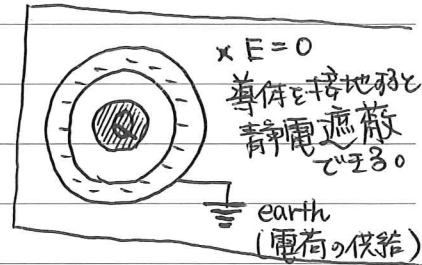 × E = 0
導体を接地すると
静電遮蔽
できる。
Q
earth
(電荷の供給)